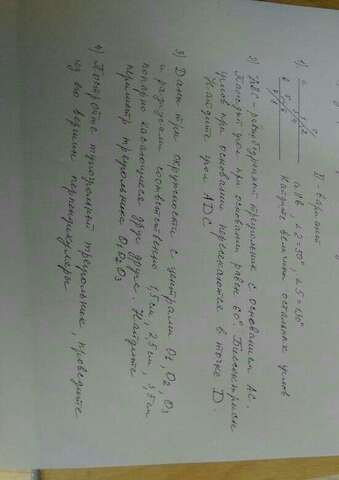 II - вариант
1) a
a ∥ b
∠2 = 30°, ∠5 = 150°
Найдите величины остальных углов
2) АВС - равнобедренный треугольник с основанием АС.
угол при основании равен 60°. Биссектрисы
углов при основании пересекаются в точке D.
Найдите угол ADC
3) Даны три окружности с центрами O₁, O₂, O₃
и радиусами соответственно 1,5 см, 2,5 см, 3,5 см
попарно касающиеся друг друга. Найдите
периметр треугольника O₁O₂O₃
4) Постройте тупоугольный треугольник, проведите
из его вершин перпендикуляры